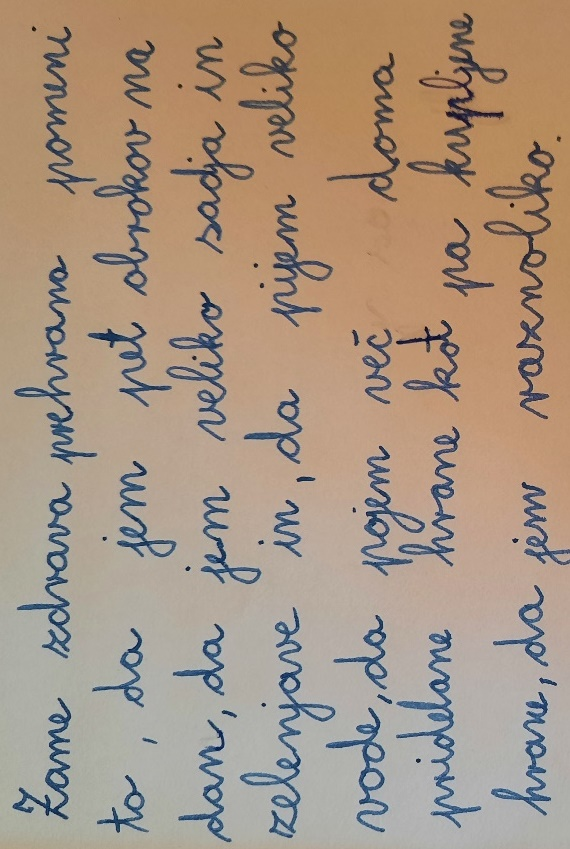 Zame zdrava prehrana pomeni
to, da jem pet obrokov na
dan, da jem veliko sadja in
zelenjave in, da pijem veliko
vode, da pojem več doma
pridelane hrane kot pa kupljene
hrane, da jem raznoliko.